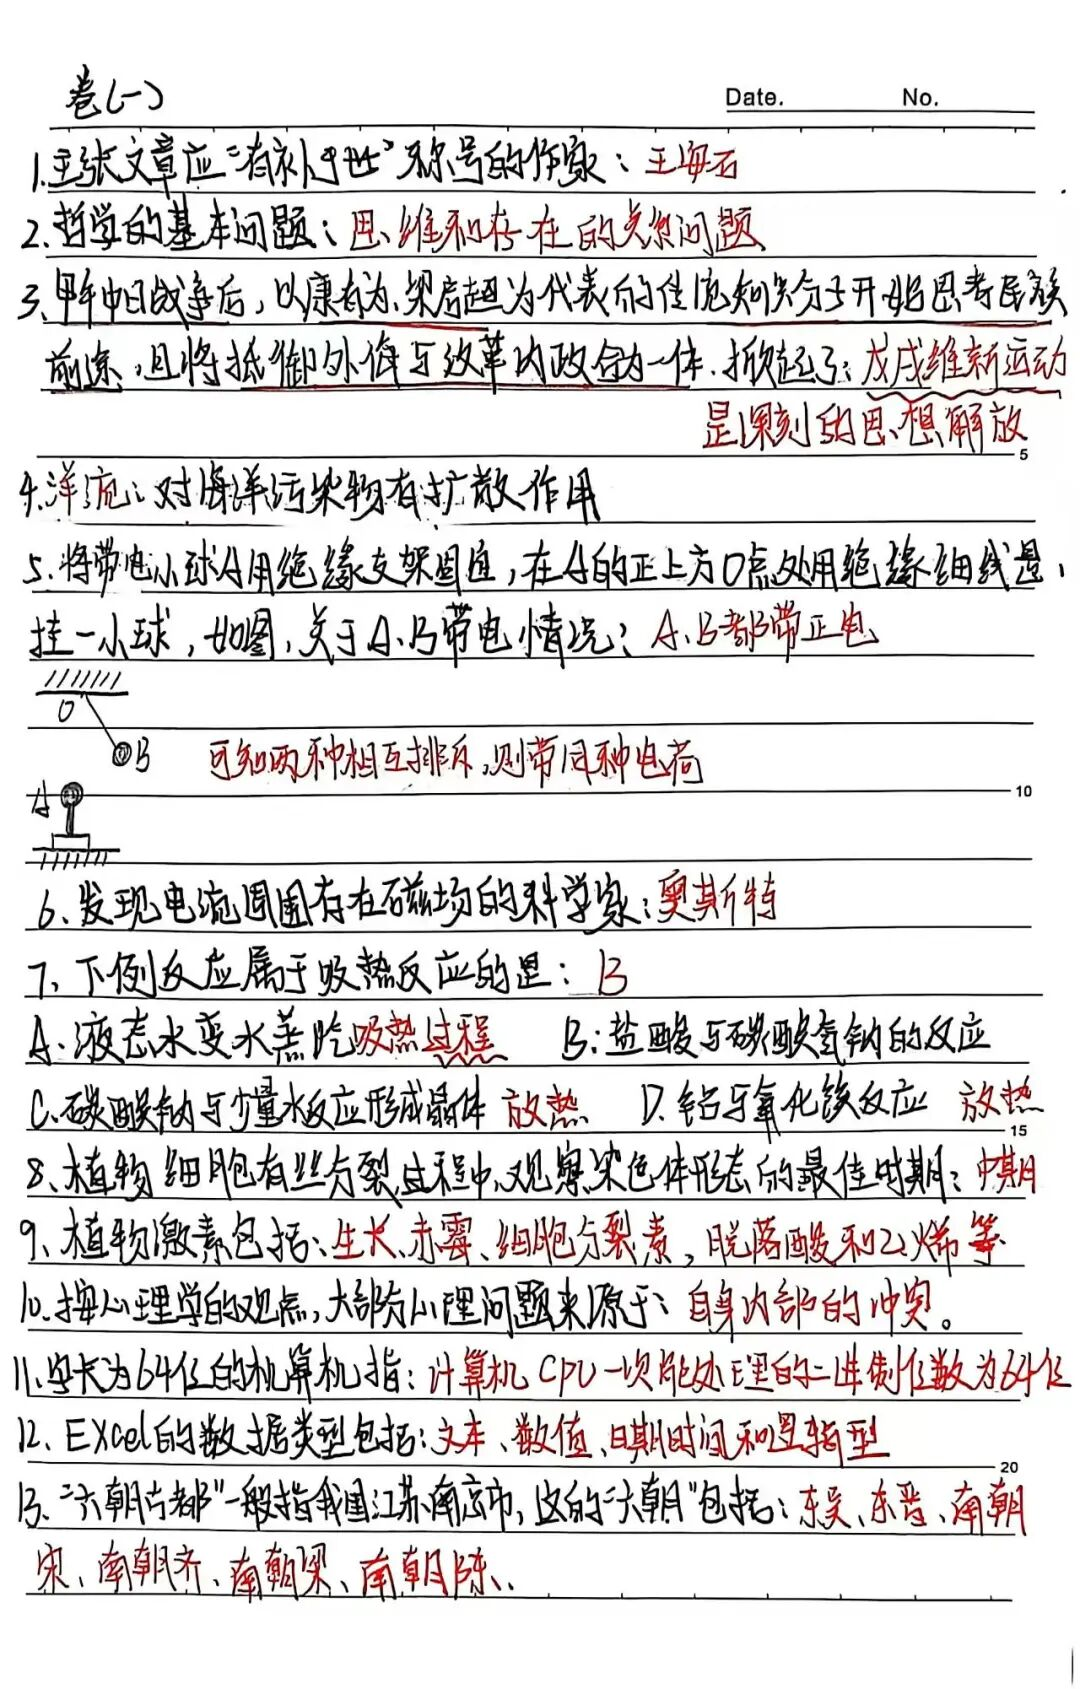 卷(一)
Date. No.
1.主张文章应“有补于世”称号的作家：王安石
2.哲学的基本问题：思维和存在的关系问题
3.甲午中日战争后，以康有为、梁启超为代表的传统知识分子开始思考民族
前途，且将抵御外侮与改革内政合为一体，掀起了：戊戌维新运动
是深刻的思想解放
5
4.洋流：对海洋污染物有扩散作用
5.将带电小球A用绝缘支架固定，在A的正上方O点处用绝缘细线悬
挂一小球，如图，关于A、B带电情况：A、B都带正电
O
B 可知两种相互排斥，则带同种电荷
A 10
6、发现电流周围存在磁场的科学家：奥斯特
7、下例反应属于吸热反应的是：B
A.液态水变水蒸汽吸热过程 B:盐酸与碳酸氢钠的反应
C.碳酸钠与少量水反应形成晶体 放热 D.铝与氧化铁反应 放热
15
8、植物细胞有丝分裂过程中，观察染色体形态的最佳时期：中期
9、植物激素包括：生长、赤霉、细胞分裂素，脱落酸和乙烯等
10.按心理学的观点，大部分心理问题来源于：自身内部的冲突。
11.字长为64位的机算机指：计算机CPU一次能处理的二进制位数为64位
12.EXcel的数据类型包括：文本、数值、日期时间和逻辑型
20
13.“六朝古都”一般指我国江苏南京市，这的“六朝”包括：东吴、东晋、南朝
宋、南朝齐、南朝梁、南朝陈、